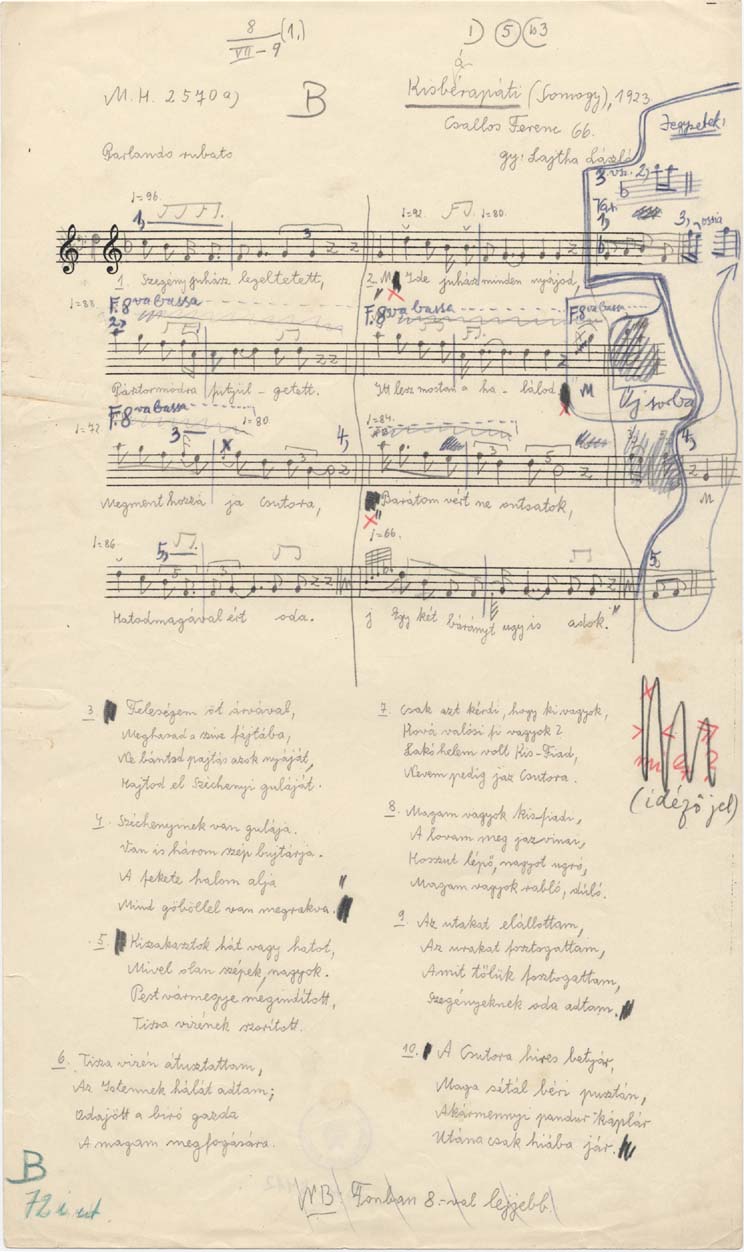 8 (1,)
VII-9
1) 5 b3
M.H. 2570a)
B
Kisbérapáti (Somogy), 1923
Csallos Ferenc 66.
Parlando rubato
gy: Lajtha László
Jegyzetek:
3 vsz. 2,
Var.
1,
3, ossia
♩=96.
1,
3
♩=92.
♩=80.
1. Szegény juhász legeltetett,
2. Ide juhász minden nyájad,
♩=88.
F. 8va bassa
2,
F. 8va bassa
F. 8va bassa
Pásztormódra fütyül - getett.
Itt lesz mostan a ha - lálod
M
Új sorba
♩=72
F. 8va bassa
♩=80.
3,
x
3
4,
♩=84.
3
5
4,
Megment hozzá ja Csutora,
Barátom vért ne ontsatok,
M
♩=86.
5,
5
3
♩=66.
5,
Hatodmagával ért oda.
j Egy két bárányt ugy is adok."
3 Feleségem öt árvával,
Meghasad a szive fájtába,
Ne bántsd pajtás azok nyáját,
Hajtod el Széchenyi guláját.
4. Széchenyinek van gulája.
Van is három szép bujtárja.
A fekete halom alja
Mind göböllel van megrakva.
5. Kiszakasztok hát vagy hatot,
Mivel olan szépek, nagyok.
Pest vármegye meginditott,
Tisza vizének szoritott.
6. Tisza vizén átusztattam,
Az Istennek hálát adtam;
Odajött a biró gazda
A magam megfogására.
7. Csak azt kérdi, hogy ki vagyok,
Hová valósi fi vagyok?
Lakóhelem volt Kis-Fiad,
Nevem pedig jaz Csutora.
8. Magam vagyok kis-fiadi,
A lovam meg jaz
Hosszut lépő, nagyot ugró,
Magam vagyok rabló, dúló.
9 Az utakat elállottam,
Az urakat fosztogattam,
Amit tőlük fosztogattam,
Szegényeknek oda adtam.
10. A Csutora hires betyár,
Maga sétál béri pusztán,
Akármennyi pandur káplár
Utána csak hiába jár.
(idéző jel)
B
72
NB: Fonban 8.-val lejjebb.